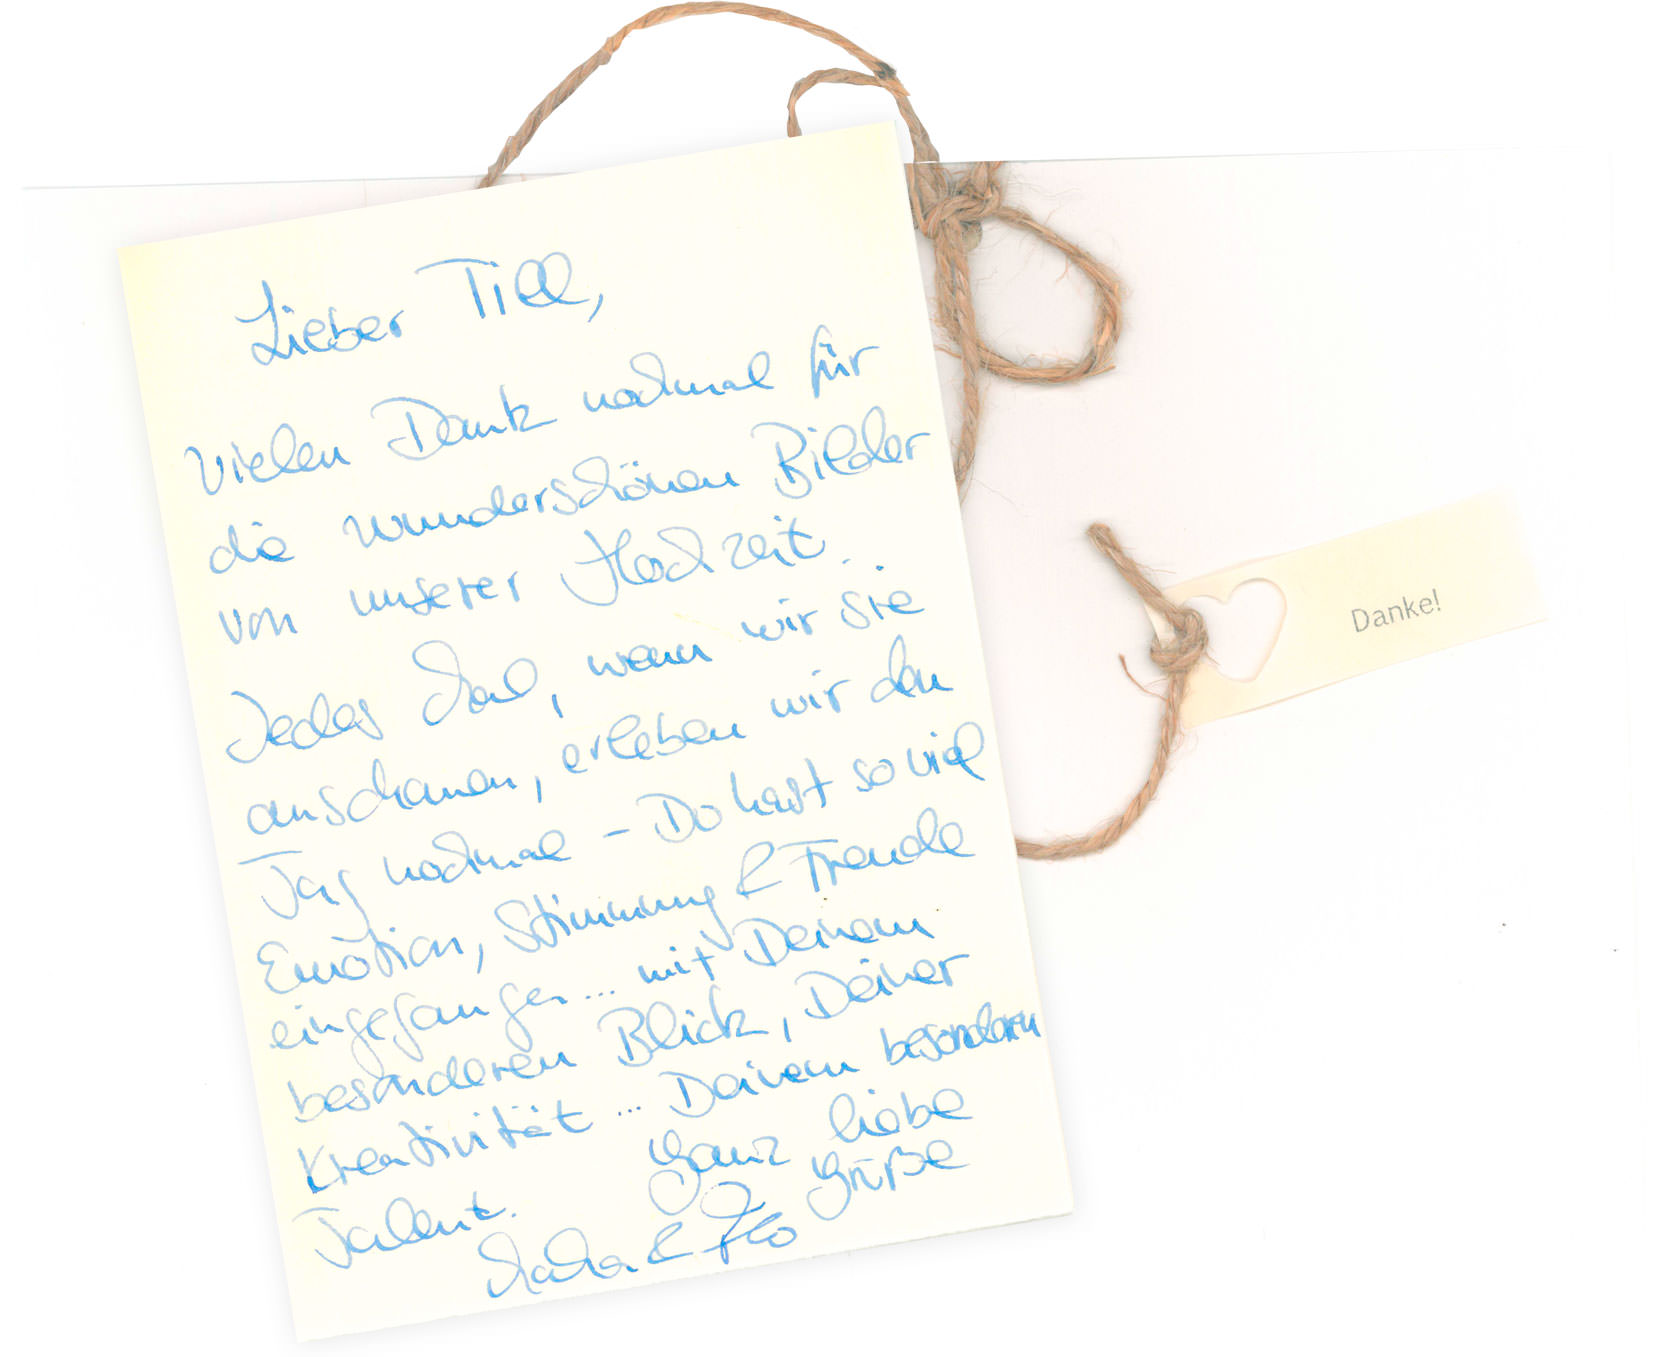 Lieber Till,
Vielen Dank nochmal für
die wunderschönen Bilder
von unserer Hochzeit.
Jedes Mal, wenn wir sie
anschauen, erleben wir den
Tag nochmal – Du hast so viel
Emotion, Stimmung & Freude
eingefangen... mit Deinem
besonderen Blick, Deiner
Kreativität ... Deinem besonderen
Talent. Ganz liebe
Grüße
& Flo
Danke!